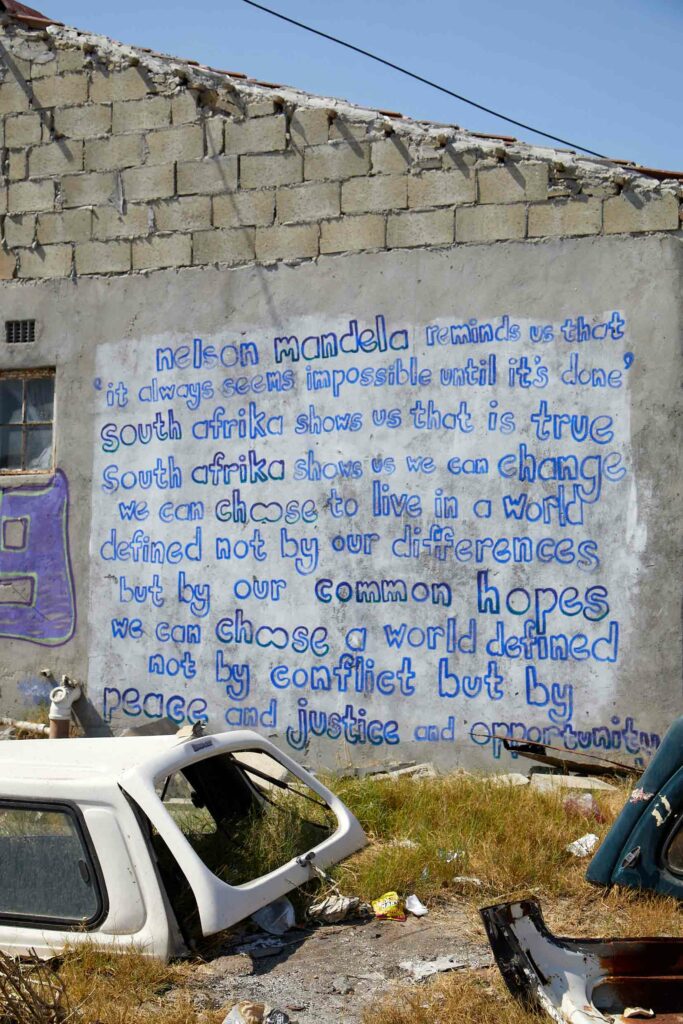 nelson mandela reminds us that
'it always seems impossible until it's done'
south afrika shows us that is true
south afrika shows us we can change
we can choose to live in a world
defined not by our differences
but by our common hopes
we can choose a world defined
not by conflict but by
peace and justice and opportunity